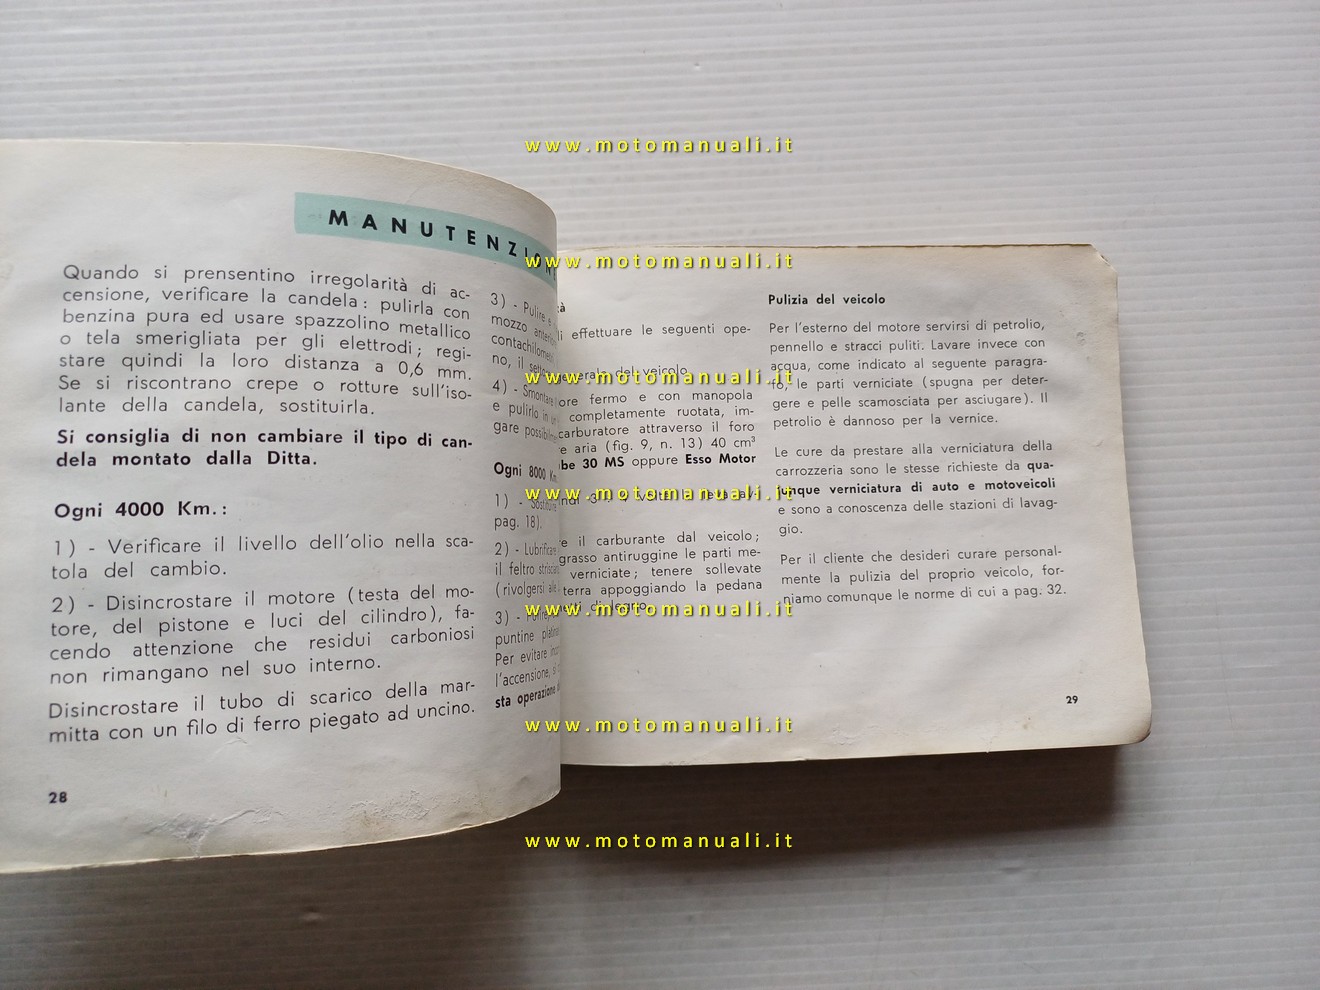 MANUTENZION
Quando si prensentino irregolarità di ac-
censione, verificare la candela: pulirla con
benzina pura ed usare spazzolino metallico
o tela smerigliata per gli elettrodi; regi-
stare quindi la loro distanza a 0,6 mm.
Se si riscontrano crepe o rotture sull'iso-
lante della candela, sostituirla.
Si consiglia di non cambiare il tipo di can-
dela montato dalla Ditta.
Ogni 4000 Km.:
1) - Verificare il livello dell'olio nella sca-
tola del cambio.
2) - Disincrostare il motore (testa del mo-
tore, del pistone e luci del cilindro), fa-
cendo attenzione che residui carboniosi
non rimangano nel suo interno.
Disincrostare il tubo di scarico della mar-
mitta con un filo di ferro piegato ad uncino.
28
3) - Pulire e
mozzo anterio
contachilomet
no, il
4) - Smontare
e pulirlo in
gare possibilm
Ogni 8000 Km
1) - Sostituire
pag. 18).
2) - Lubrificare
il feltro
(rivolgersi alle
3) -
puntine platina
Per evitare
l'accensione, si
sta operazione
tà
li effettuare le seguenti ope-
generale del veicolo.
ore fermo e con manopola
completamente ruotata, im-
carburatore attraverso il foro
re aria (fig. 9, n. 13) 40 cm³
be 30 MS oppure Esso Motor
volte la leva av-
re il carburante dal veicolo;
grasso antiruggine le parti me-
verniciate; tenere sollevate
terra appoggiando la pedana
di legno.
Pulizia del veicolo
Per l'esterno del motore servirsi di petrolio,
pennello e stracci puliti. Lavare invece con
acqua, come indicato al seguente paragra-
fo, le parti verniciate (spugna per deter-
gere e pelle scamosciata per asciugare). Il
petrolio è dannoso per la vernice.
Le cure da prestare alla verniciatura della
carrozzeria sono le stesse richieste da qua-
lunque verniciatura di auto e motoveicoli
e sono a conoscenza delle stazioni di lavag-
gio.
Per il cliente che desideri curare personal-
mente la pulizia del proprio veicolo, for-
niamo comunque le norme di cui a pag. 32.
29
www.motomanuali.it
www.motomanuali.it
www.motomanuali.it
www.motomanuali.it
www.motomanuali.it
www.motomanuali.it
www.motomanuali.it